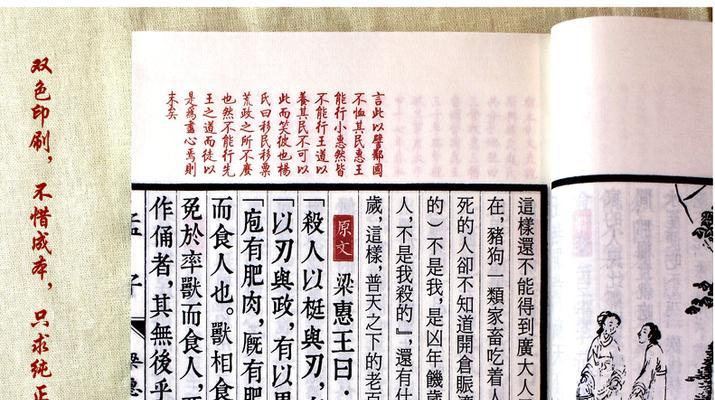 双色印刷，不惜成本，只求纯正
言此以譬鄰國
不恤其民惠王
能行小惠然皆
不能行王道以
養其民不可以
此而笑彼也楊
氏曰移民移粟
荒政之所不廢
也然不能行先
王之道而徒以
是爲盡心焉則
末矣
這樣還不能得到廣大人
在，豬狗一類家畜吃着人
死的人卻不知道開倉賑濟
的）不是我，是凶年饑歲
人，不是我殺的』，還有什
歲，這樣，普天之下的老百
原文
梁惠王曰
「殺人以梃與刃，
「以刃與政，有以異
「庖有肥肉，厩有肥
而食人也。獸相食
免於率獸而食人，
作俑者，其無後乎
孟子
梁惠